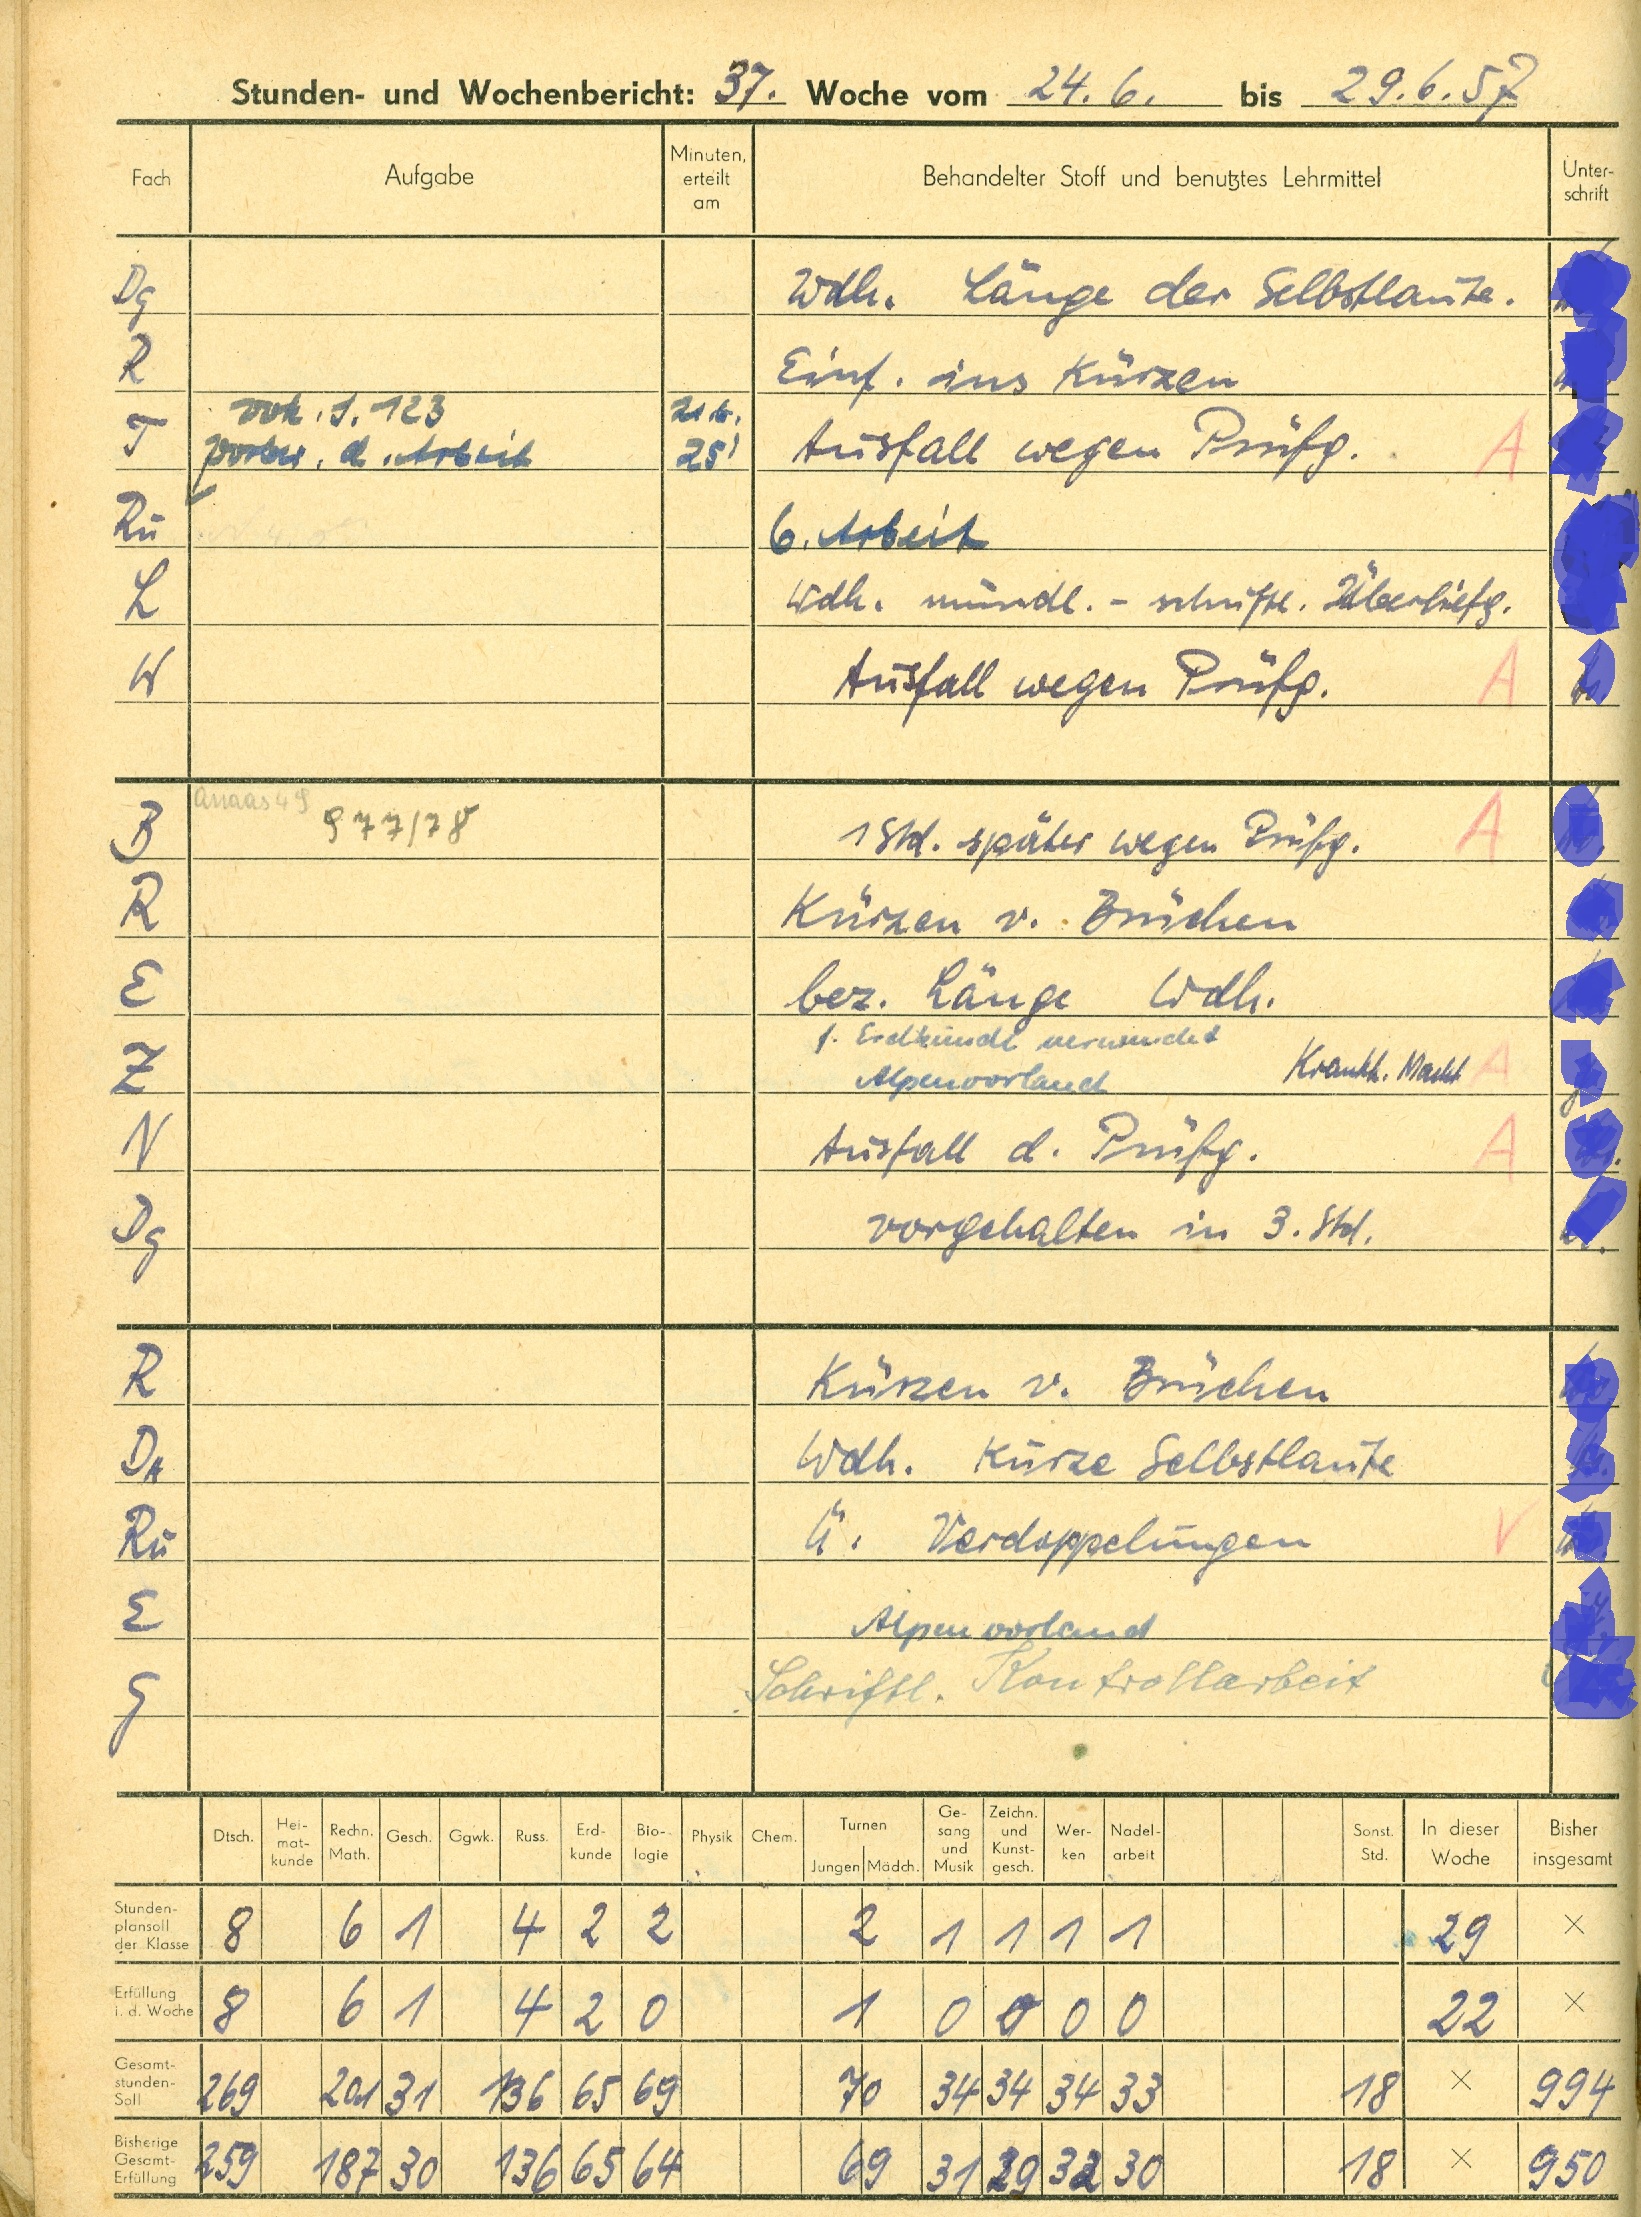 Stunden- und Wochenbericht: 37. Woche vom 24.6. bis 29.6.57
Fach Aufgabe Minuten, erteilt am Behandelter Stoff und benutztes Lehrmittel Unter-schrift
Dg Wdh. Länge der Selbstlaute.
R Einf. ins Kürzen
vok. S. 123 21.6.
T vorber. d. Arbeit 25' Ausfall wegen Prüfg. A
Ru 6. Arbeit
L Wdh. mündl. - schriftl. Überliefg.
W Ausfall wegen Prüfg. A
B 977/78 1 Std. später wegen Prüfg. A
R Kürzen v. Brüchen
E bez. Länge Wdh.
f. Erdkunde verwendet
Z Alpenvorland Krankh. A
N Ausfall d. Prüfg. A
Dg vorgehalten in 3. Std.
R Kürzen v. Brüchen
DA Wdh. Kurze Selbstlaute
Ru Ü. Verdoppelungen V
E Alpenvorland
G Schriftl. Kontrollarbeit
Dtsch. Hei-mat-kunde Rechn. Math. Gesch. Ggwk. Russ. Erd-kunde Bio-logie Physik Chem. Turnen Jungen Mädch. Ge-sang und Musik Zeichn. und Kunst-gesch. Wer-ken Nadel-arbeit Sonst. Std. In dieser Woche Bisher insgesamt
Stunden-plansoll der Klasse 8 6 1 4 2 2 2 1 1 1 1 29 ×
Erfüllung i. d. Woche 8 6 1 4 2 0 1 0 0 0 0 22 ×
Gesamt-stunden-Soll 269 201 31 136 65 69 70 34 34 34 33 18 × 994
Bisherige Gesamt-Erfüllung 259 187 30 136 65 64 69 31 29 32 30 18 × 950